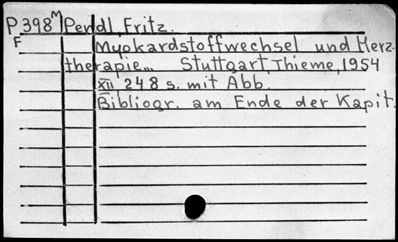 P 398 M Pendl, Fritz.
F Myokardstoffwechsel und Herz-
therapie... Stuttgart, Thieme, 1954
XII 248 s. mit Abb.
Bibliogr. am Ende der Kapit.